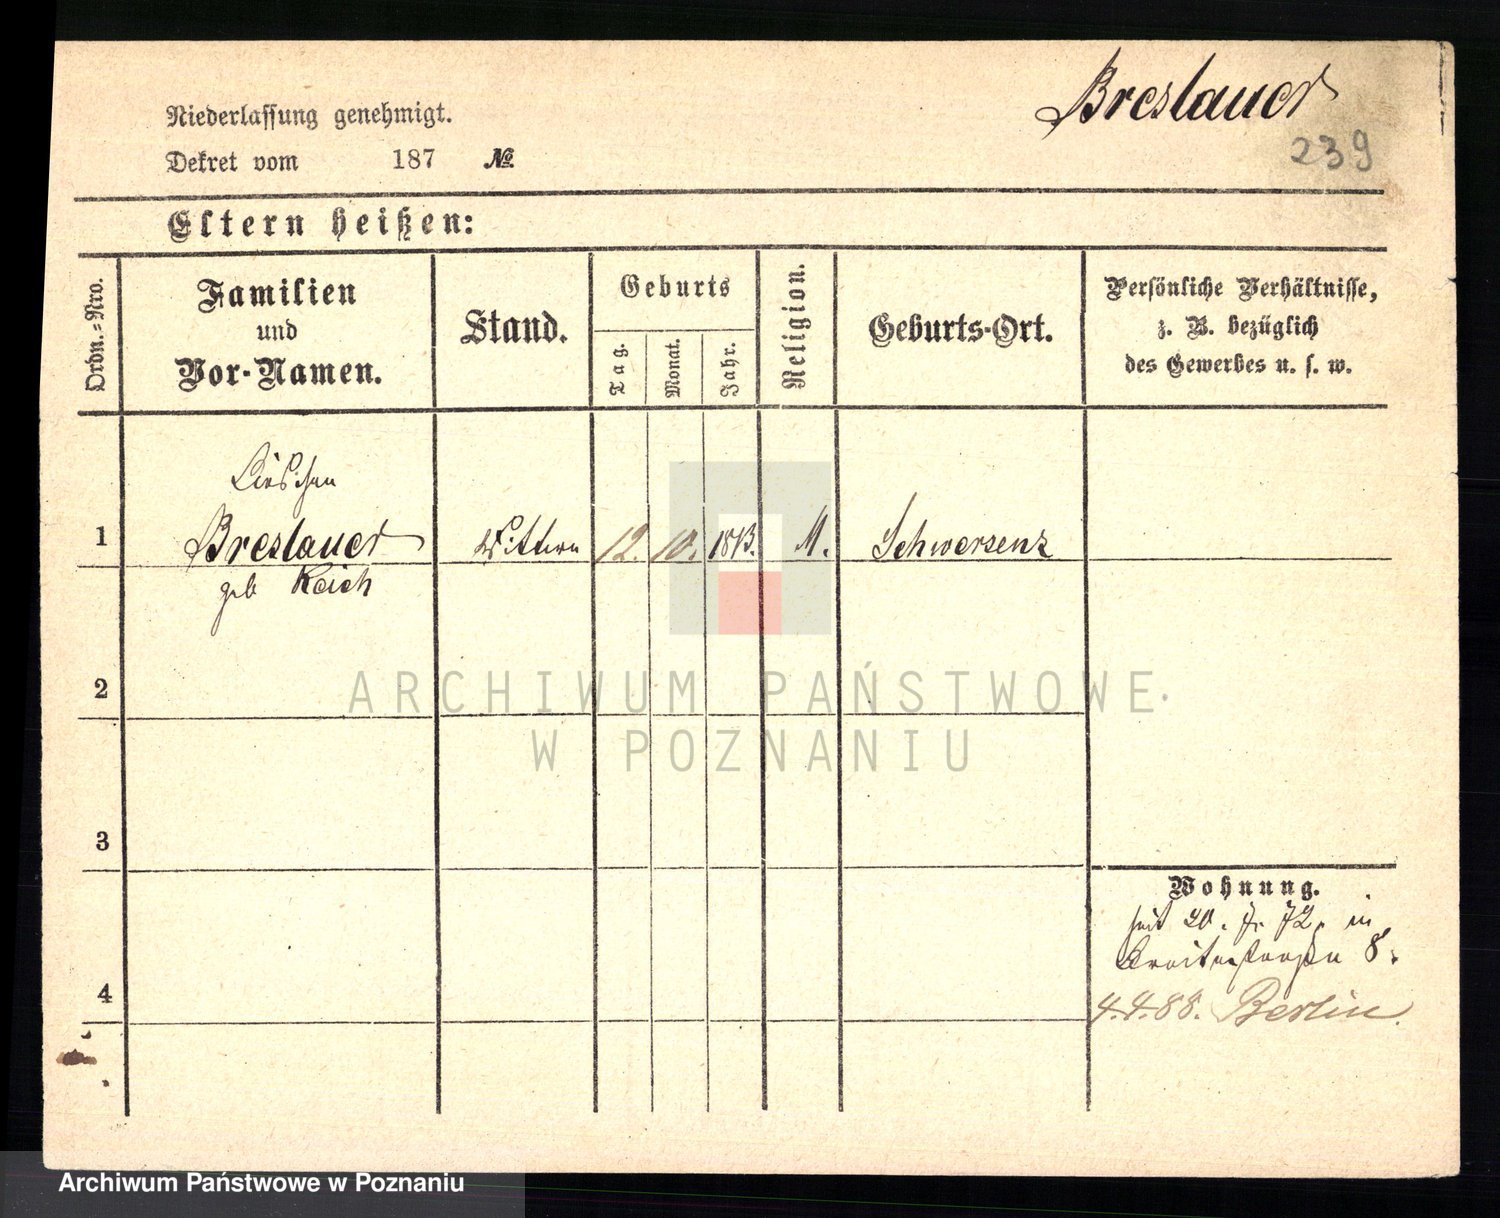 Breslauer
239
Niederlassung genehmigt.
Dekret vom 187 №
Eltern heißen:
Ordn.=Nro.
Familien
und
Vor-Namen.
Stand.
Geburts
Tag.
Monat.
Jahr.
Religion.
Geburts-Ort.
Persönliche Verhältnisse,
z. B. bezüglich
des Gewerbes u. s. w.
1 Breslauer Wittwe 12. 10. 1813. M. Schwersenz
geb Reich
2
3
4
Wohnung.
seit 20. 7. 72. in
Breitestraße 8.
4.4.88. Berlin.
ARCHIWUM PAŃSTWOWE
W POZNANIU
Archiwum Państwowe w Poznaniu